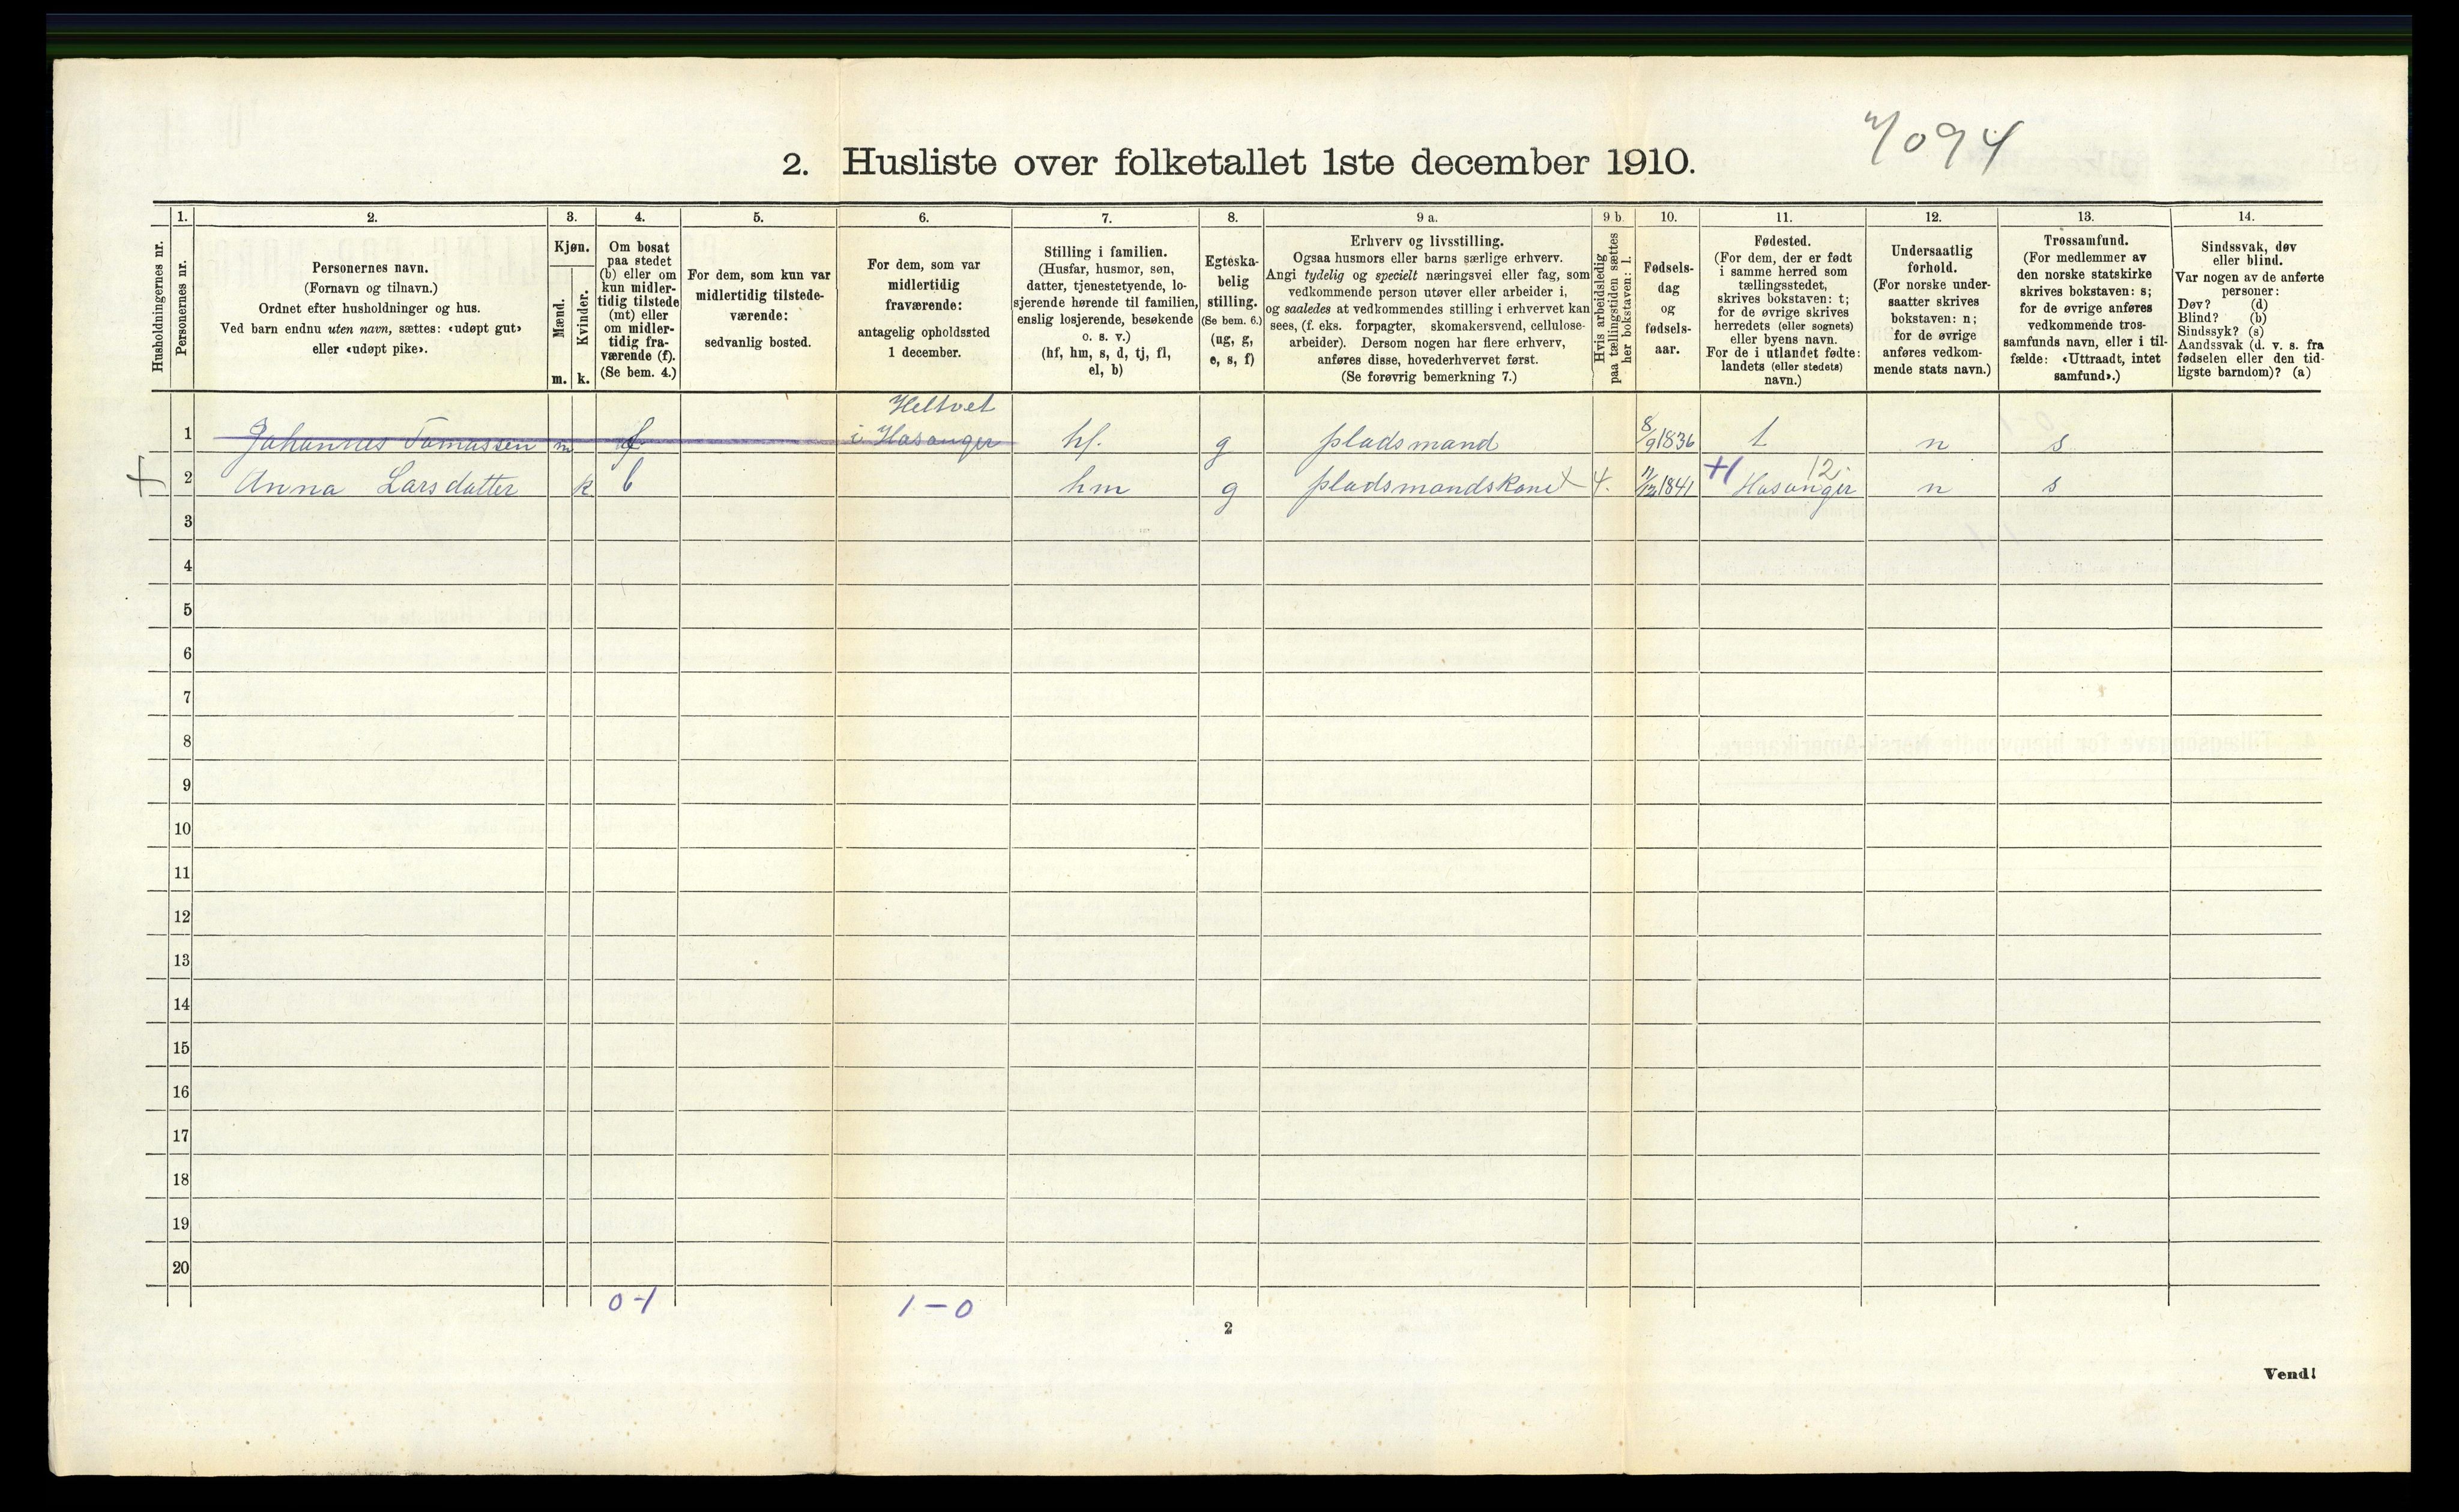 7094
2. Husliste over folketallet 1ste december 1910.
Husholdningernes nr.
1.
Personernes nr.
2.
Personernes navn.
(Fornavn og tilnavn.)
Ordnet efter husholdninger og hus.
Ved barn endnu uten navn, sættes: «udøpt gut»
eller «udøpt pike».
3.
Kjøn.
Mænd.
Kvinder.
m. k.
4.
Om bosat
paa stedet
(b) eller om
kun midler-
tidig tilstede
(mt) eller
om midler-
tidig fra-
værende (f).
(Se bem. 4.)
5.
For dem, som kun var
midlertidig tilstede-
værende:
sedvanlig bosted.
6.
For dem, som var
midlertidig
fraværende:
antagelig opholdssted
1 december.
7.
Stilling i familien.
(Husfar, husmor, søn,
datter, tjenestetyende, lo-
sjerende hørende til familien,
enslig losjerende, besøkende
o. s. v.)
(hf, hm, s, d, tj, fl,
el, b)
8.
Egteska-
belig
stilling.
(Se bem. 6.)
(ug, g,
e, s, f)
9 a.
Erhverv og livsstilling.
Ogsaa husmors eller barns særlige erhverv.
Angi tydelig og specielt næringsvei eller fag, som
vedkommende person utøver eller arbeider i,
og saaledes at vedkommendes stilling i erhvervet kan
sees, (f. eks. forpagter, skomakersvend, cellulose-
arbeider). Dersom nogen har flere erhverv,
anføres disse, hovederhvervet først.
(Se forøvrig bemerkning 7.)
9 b.
Hvis arbeidsledig
paa tællingstiden sættes
her bokstaven: l.
10.
Fødsels-
dag
og
fødsels-
aar.
11.
Fødested.
(For dem, der er født
i samme herred som
tællingsstedet,
skrives bokstaven: t;
for de øvrige skrives
herredets (eller sognets)
eller byens navn.
For de i utlandet fødte:
landets (eller stedets)
navn.)
12.
Undersaatlig
forhold.
(For norske under-
saatter skrives
bokstaven: n;
for de øvrige
anføres vedkom-
mende stats navn.)
13.
Trossamfund.
(For medlemmer av
den norske statskirke
skrives bokstaven: s;
for de øvrige anføres
vedkommende tros-
samfunds navn, eller i til-
fælde: «Uttraadt, intet
samfund».)
14.
Sindssvak, døv
eller blind.
Var nogen av de anførte
personer:
Døv? (d)
Blind? (b)
Sindssyk? (s)
Aandssvak (d. v. s. fra
fødselen eller den tid-
ligste barndom)? (a)
Heltvet
1 Johannes Tomassen m f i Hosanger hf. g pladsmand 8/9 1836 t n s
12
2 Anna Larsdatter k b hm g pladsmandskone 4. 11/12 1841 +1 Hosanger n s
3
4
5
6
7
8
9
10
11
12
13
14
15
16
17
18
19
20
0-1 1-0
2
Vend!